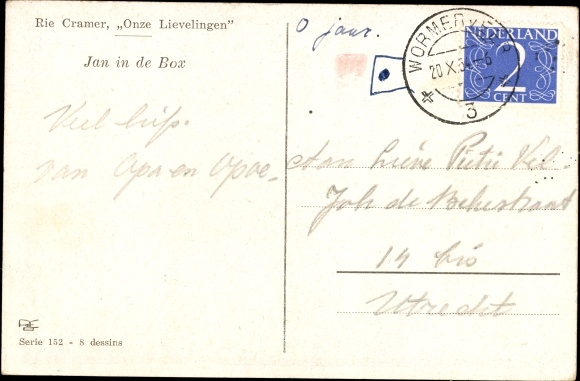 Rie Cramer, „Onze Lievelingen"
Jan in de Box
0 jaar.
WORMERVEER
20 X 5
3
NEDERLAND
2
CENT
Veel liefs.
van Opa en Opoe.
Aan Lieve Pietie
Joh de Bekastraat
14 bis
Utrecht
Serie 152 - 8 dessins